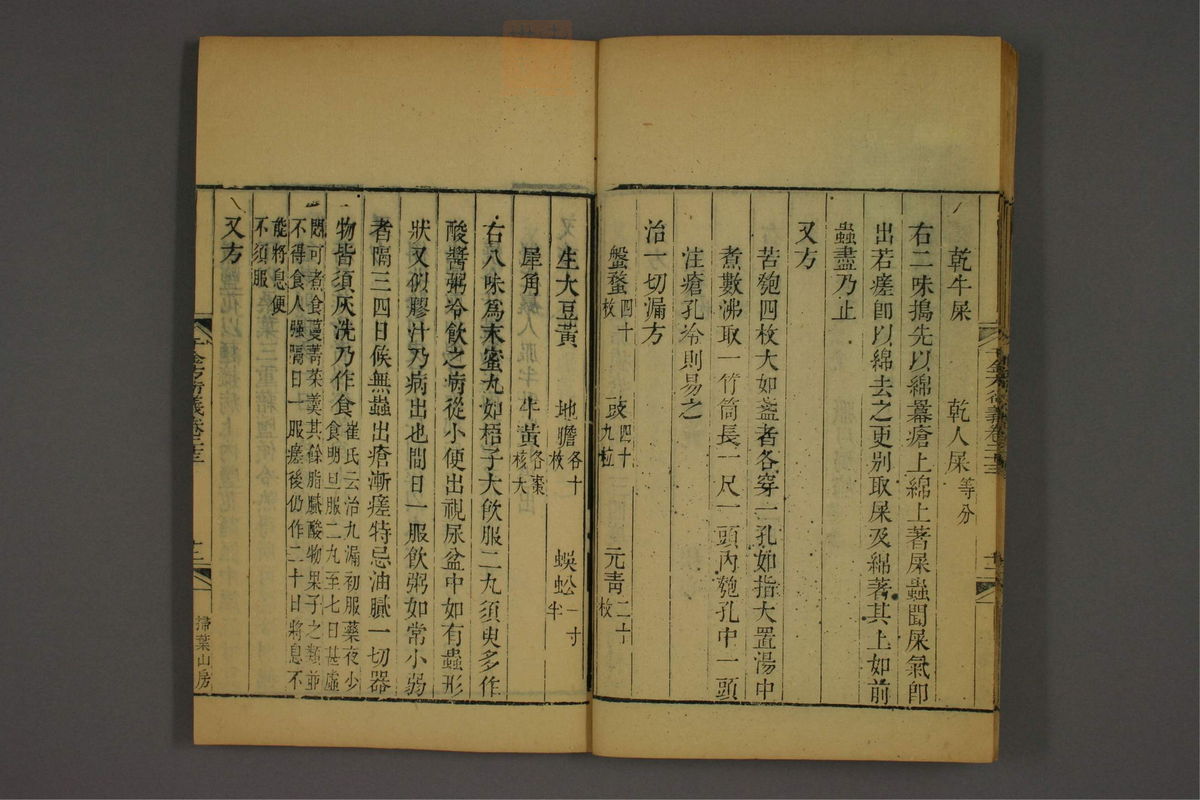 乾牛屎　乾人屎等分
右二味搗先以綿羃瘡上綿上著屎蟲聞屎氣卽
出若瘥卽以綿去之更别取屎及綿著其上如前
蟲盡乃止
又方
苦匏四枚大如盞者各穿一孔如指大置湯中
煮數沸取一竹筒長一尺一頭內匏孔中一頭
注瘡孔冷則易之
治一切漏方
盤蝥四十枚　豉四十九粒　元青二十枚
生大豆黃　地膽各十枚　蜈蚣一寸半
犀角　牛黃各棗核大
右八味爲末蜜丸如梧子大飲服二丸須臾多作
酸醬粥冷飲之病從小便出視尿盆中如有蟲形
狀又似膠汁乃病出也間日一服飲粥如常小弱
者隔三四日候無蟲出瘡漸瘥特忌油膩一切器
物皆須灰洗乃作食
崔氏云治九漏初服藥夜少
食明旦服二丸至七日甚虛
悶可煮食蔓菁菜羹其餘脂膩酸物果子之類並
不得食人强隔日一服瘥後仍作二十日將息不
能將息便
不須服
又方
千金方衍義卷二十三
十二
掃葉山房